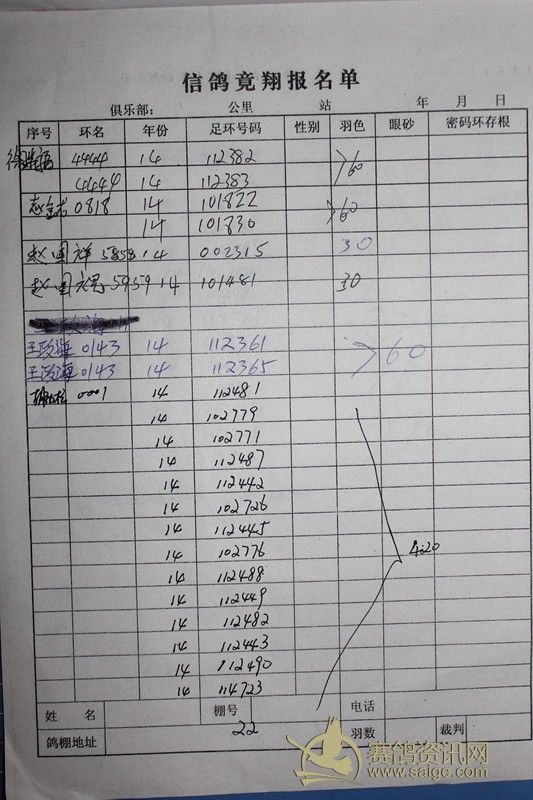 信鸽竟翔报名单
俱乐部： 公里 站 年 月 日
序号 环名 年份 足环号码 性别 羽色 眼砂 密码环存根
4444 14 112382
4444 14 112383 60
0818 14 101822
14 101830 60
赵国祥 5858 14 002315 30
赵国 5959 14 101481 30
0143 14 112361
0143 14 112365 60
0001 14 112481
14 102779
14 102771
14 112487
14 112442
14 102726
14 112445
14 102776 420
14 112488
14 112449
14 112482
14 112443
14 112490
14 114723
姓名 棚号 电话
鸽棚地址 22 羽数 裁判
赛鸽资讯网
www.saige.com